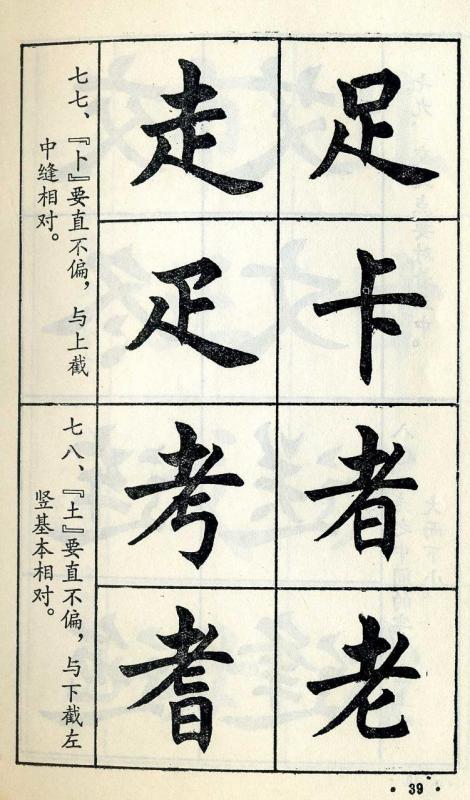 足
走
卡
疋
七七、『卜』要直不偏，与上截
中缝相对。
者
考
老
耆
七八、『土』要直不偏，与下截左
竖基本相对。
· 39 ·